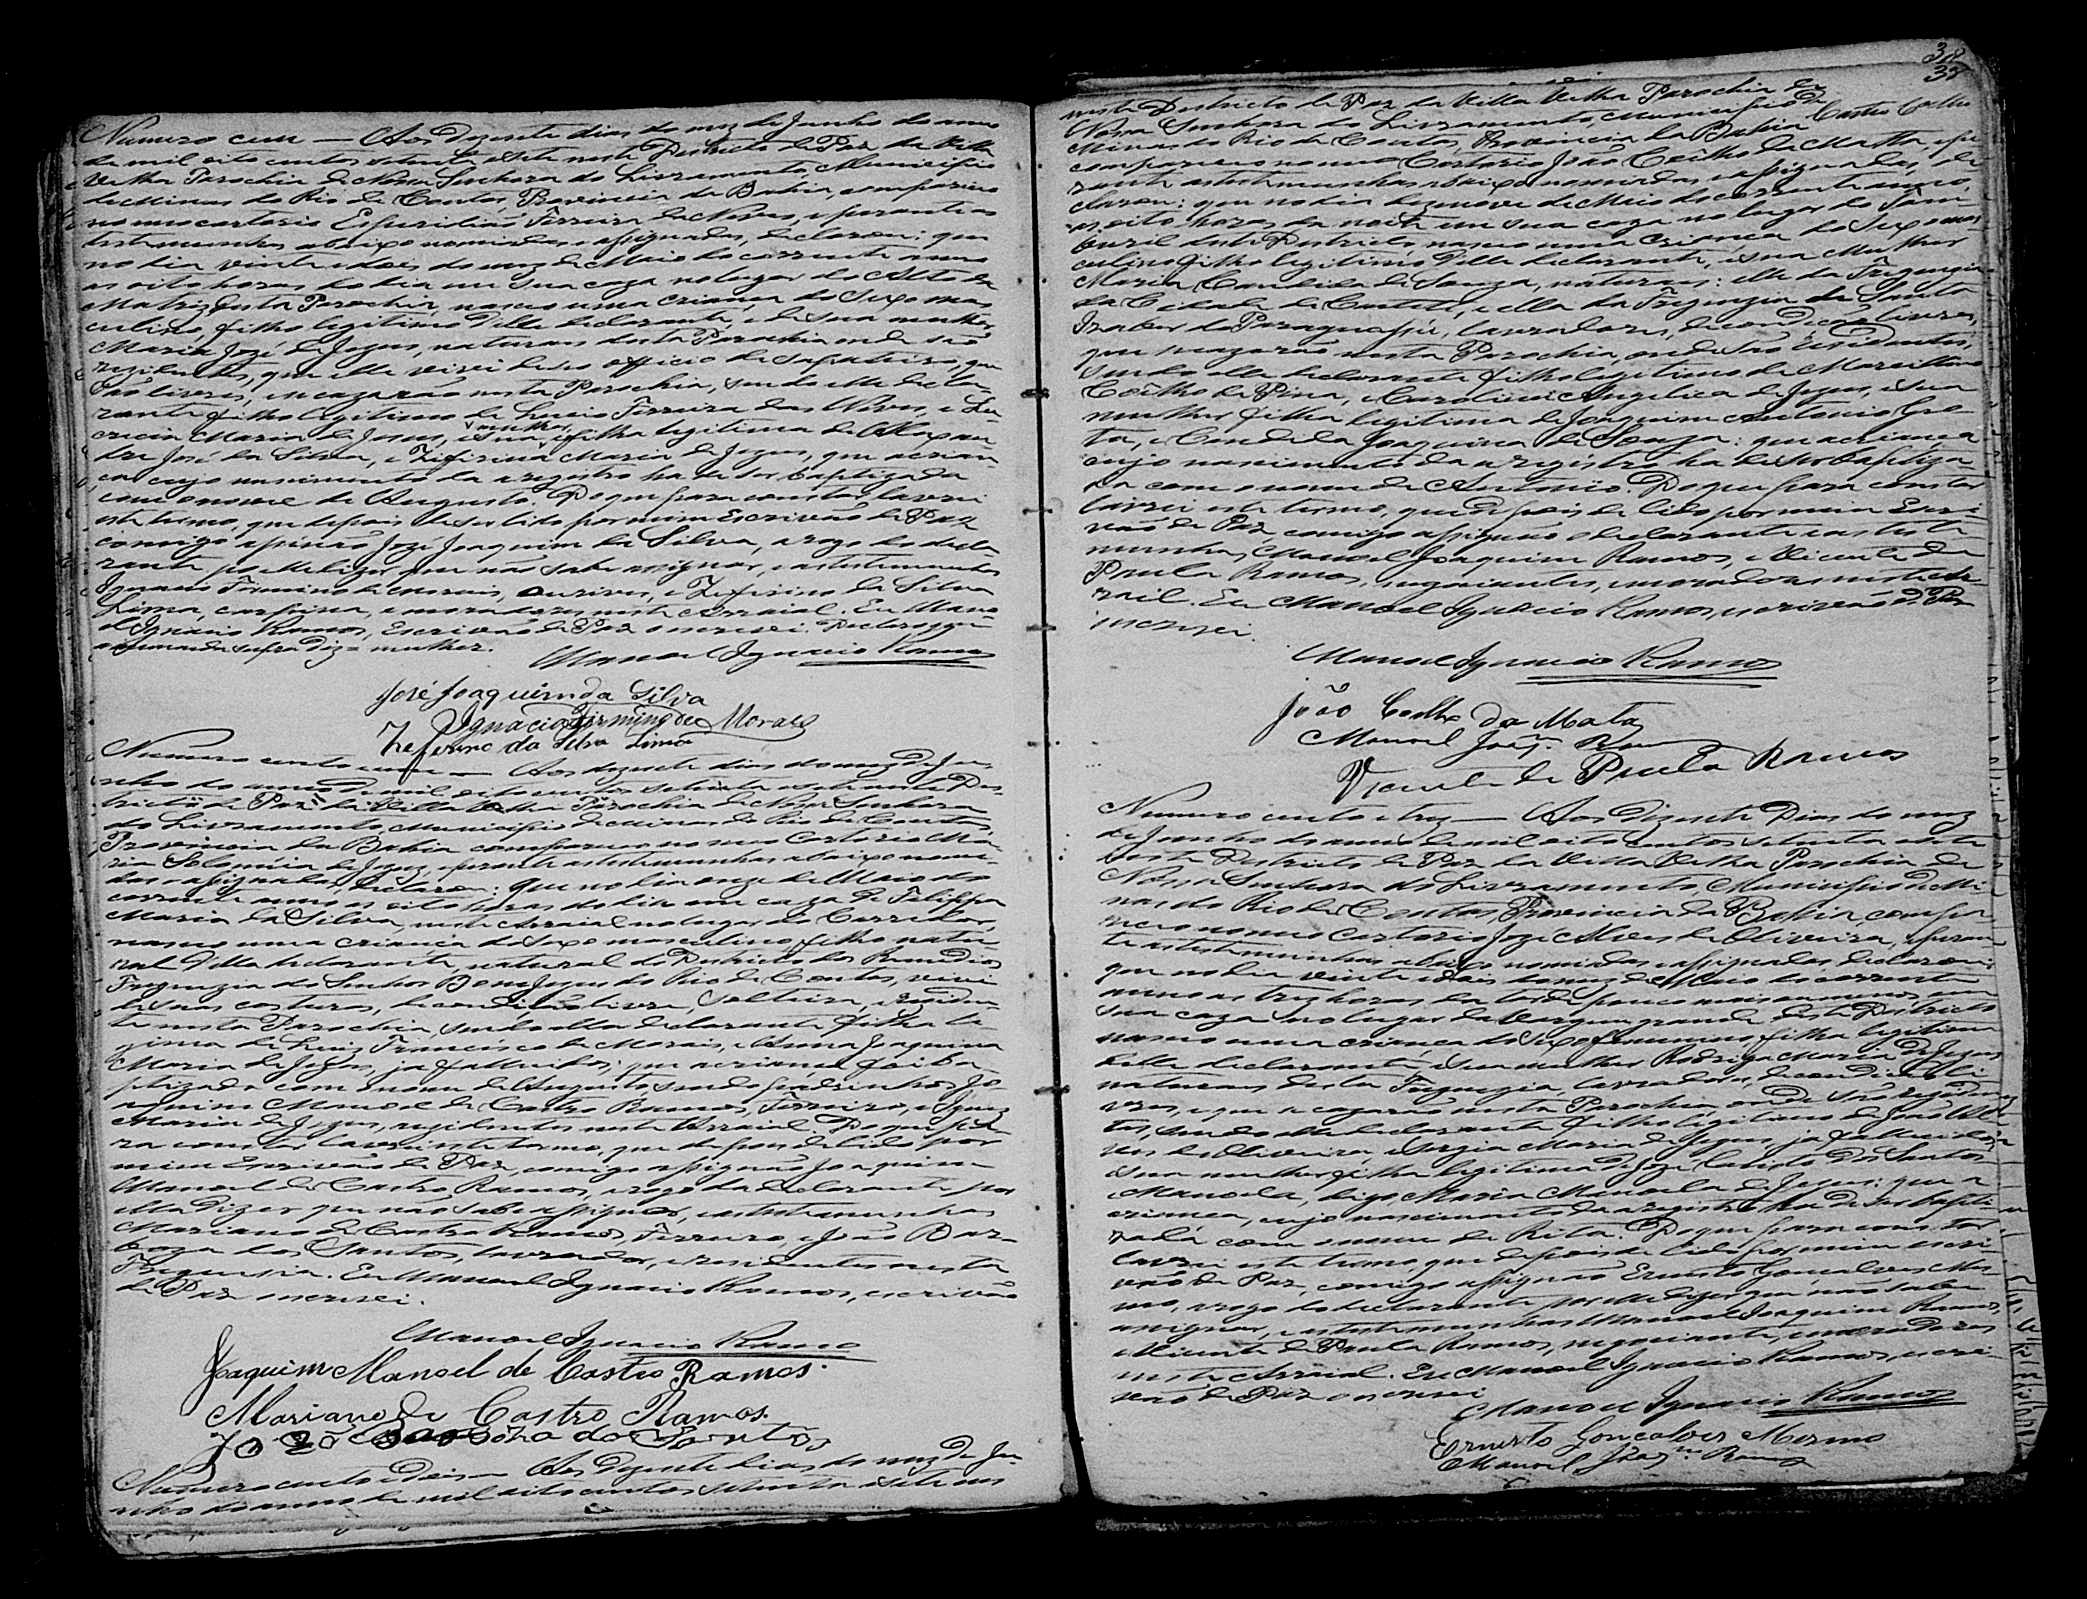 Numero cem — Aos dezesete dias do mez de Junho do anno
de mil oito centos setenta e sete neste Districto de Paz da Villa
Velha Parochia de Nossa Senhora do Livramento, Municipio
de Minas do Rio de Contas, Provincia da Bahia, compareceo
no meo cartorio Esperidião Ferreira de Neves, e perante as
testemunhas abaixo nomeadas e assignadas, declarou: que
no dia vinte e dois do mez de Maio do corrente anno
as oito horas do dia em sua caza no lugar do Alto da
Matriz desta Parochia, nasceu uma criança do sexo mas
culino, filho legitimo delle declarante, e de sua mulher
Maria José de Jezus, naturaes desta Parochia onde são
rezidentes, que elle vive de seo officio de sapateiro, que
são livres, e se cazarão nesta Parochia, sendo elle decla
rante filho legitimo de Lucio Ferreira das Neves, e Lu
crecia Maria de Jesus, e sua mulher filha legitima de Alexan
dre José da Silva, e Zeferina Maria de Jezus, que a crian
ça cujo nascimento da a registro ha de ser baptizada
com o nome de Augusto. Do que para constar lavrei
este termo, que depois de ser lido por mim Escrivão de Paz
comigo assignão José Joaquim da Silva, a rogo do decla
rante por elle dizer que não sabe assignar, e as testemunhas
Ignacio Firmino de Morais, ourives, e Zeferino da Silva
Lima, carpina, e moradores neste Arraial. Eu Mano
el Ignacio Ramos, Escrivão de Paz o escrevi. Declaro que
a emenda supra diz = mulher.
Manoel Ignacio Ramos
José Joaquim da Silva
Ignacio Firmino de Moraes
Zeferino da Silva Lima
Numero cento e um — Aos dezesete dias do mez de Ju
nho do anno de mil oito centos setenta e sete neste Dis
tricto de Paz da Villa Velha Parochia de Nossa Senhora
do Livramento, Municipio de Minas do Rio de Contas,
Provincia da Bahia compareceo no meo Cartorio Ma
ria Solomêia de Jezus, e perante as testemunhas abaixo nomea
das e assignadas, declarou: que no dia onze de Maio do
corrente anno as oito horas do dia em caza de Felippa
Maria da Silva, neste Arraial no lugar do Corredor,
nasceu uma criança do sexo masculino, filho natu
ral della declarante, natural do Districto dos Remedios
Freguezia do Senhor Bom Jezus do Rio de Contas, vive
de suas costuras, de condição livre, solteira, e reziden
te nesta Parochia, sendo ella declarante filha le
gitima de Luiz Francisco de Morais, e Anna Joaquina
Maria de Jezus, ja fallecidos; que a criança foi ba
ptizada com o nome de Augusto sendo padrinhos Jo
aquim Manoel de Castro Ramos, Ferreiro, e Ignez
Maria de Jezus, rezidentes neste Arraial. Do que pa
ra constar lavrei este termo, que depois de lido por
mim Escrivão de Paz, comigo assignão Joaquim
Manoel de Castro Ramos, a rogo da declarante por
ella dizer que não sabe assignar, e as testemunhas
Mariano de Castro Ramos, Ferreiro, e João Bar
boza dos Santos, lavrador, e rezidentes nesta
Freguezia. Eu Manoel Ignacio Ramos, escrivão
de Paz o escrevi.
Manoel Ignacio Ramos
Joaquim Manoel de Castro Ramos.
Mariano de Castro Ramos.
João Barbôza dos Santos
Numero cento e dois — Aos dezesete dias do mez de Ju
nho do anno de mil oito centos setenta e sete nes
38
neste Districto de Paz da Villa Velha Parochia de
Nossa Senhora do Livramento, Municipio de
Minas do Rio de Contas, Provincia da Bahia
compareceo no meo Cartorio João Coêlho da Matta, e pe
rante as testemunhas abaixo nomeadas e assignadas, de
clarou: que no dia dezenove de Maio do corrente anno,
as oito horas da noite em sua caza no lugar do Tam
buril deste Districto nasceu uma criança do sexo mas
culino filho legitimo delle declarante, e sua mulher
Maria Candida de Souza, naturaes: elle da Freguezia
da Cidade de Caeteté, e ella da Freguezia de Santa
Izabel do Paraguassú, lavradores, de condição livres,
que se cazarão nesta Parochia, onde são rezidentes,
sendo elle declarante filho legitimo de Marcellino
Coêlho de Pina, e Carolina Angelica de Jezus, e sua
mulher filha legitima de Joaquim Antonio Gro
ta, e Candida Joaquina de Souza: que a criança
cujo nascimento da a registro ha de ser baptiza
da com o nome de Antonio. Do que para constar
lavrei este termo, que depois de lido por mim Escri
vão de Paz, comigo assignão o declarante e as teste
munhas Manoel Joaquim Ramos, e Vicente de
Paula Ramos, negociantes, e moradores neste Ar
raial. Eu Manoel Ignacio Ramos, escrivão de Paz
o escrevi.
Manoel Ignacio Ramos
João Coelho da Mata
Manoel Joaqm. Ramos
Vicente de Paula Ramos
Numero cento e trez — Aos dezesete Dias do mez
de Junho do anno de mil oito centos setenta e sete
neste Districto de Paz da Villa Velha Parochia de
Nossa Senhora do Livramento Municipio de Mi
nas do Rio de Contas, Provincia da Bahia, compa
receo no meo Cartorio José Alves de Oliveira, e peran
te as testemunhas abaixo nomeadas e assignadas, declarou:
que no dia vinte e dois do mez de Maio do corrente
anno as trez horas da tarde pouco mais ou menos, em
sua caza no lugar da Vargem grande deste Districto
nasceu uma criança do sexo femenino, filha legitima
delle declarante, e sua mulher Rodriga Maria de Jezus
naturaes desta Freguezia, lavradores, de condição li
vres, e que se cazarão nesta Parochia, onde são reziden
tes, sendo elle declarante filho legitimo de João Al
ves de Oliveira, e Sergia Maria de Jezus, ja fallecidos
e sua mulher filha legitima de José Calisto dos Santos
Manoela, digo, Maria Manoela de Jezus: que a
criança, cujo nascimento da a registro ha de ser bapti
zada com o nome de Rita. Do que para constar
lavrei este termo que depois de lido por mim escri
vão de Paz, comigo assignão Ernesto Gonçalves Mo
mo, a rogo do declarante por elle dizer que não sabe
assignar, e as testemunhas Manoel Joaquim Ramos,
e Vicente de Paula Ramos, negociantes, e moradores
neste Arraial. Eu Manoel Ignacio Ramos, escri
vão de Paz o escrevi.
Manoel Ignacio Ramos
Ernesto Gonçalves Mormo
Manoel Joaqm. Ramos